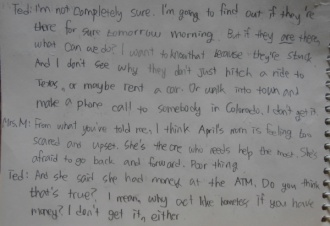 Ted: I'm not completely sure. I'm going to find out if they're
there for sure tomorrow morning. But if they are there,
what can we do? I want to know that because they're stuck
And I don't see why they don't just hitch a ride to
Texas, or maybe rent a car. Or walk into town and
make a phone call to somebody in Colorado. I don't get it
Mrs.M: From what you've told me, I think April's mom is feeling too
scared and upset. She's the one who needs help the most. She's
afraid to go back and forward. Poor thing.
Ted: And she said she had money at the ATM. Do you think
that's true? I mean, why act like homeless if you have
money? I don't get it, either.